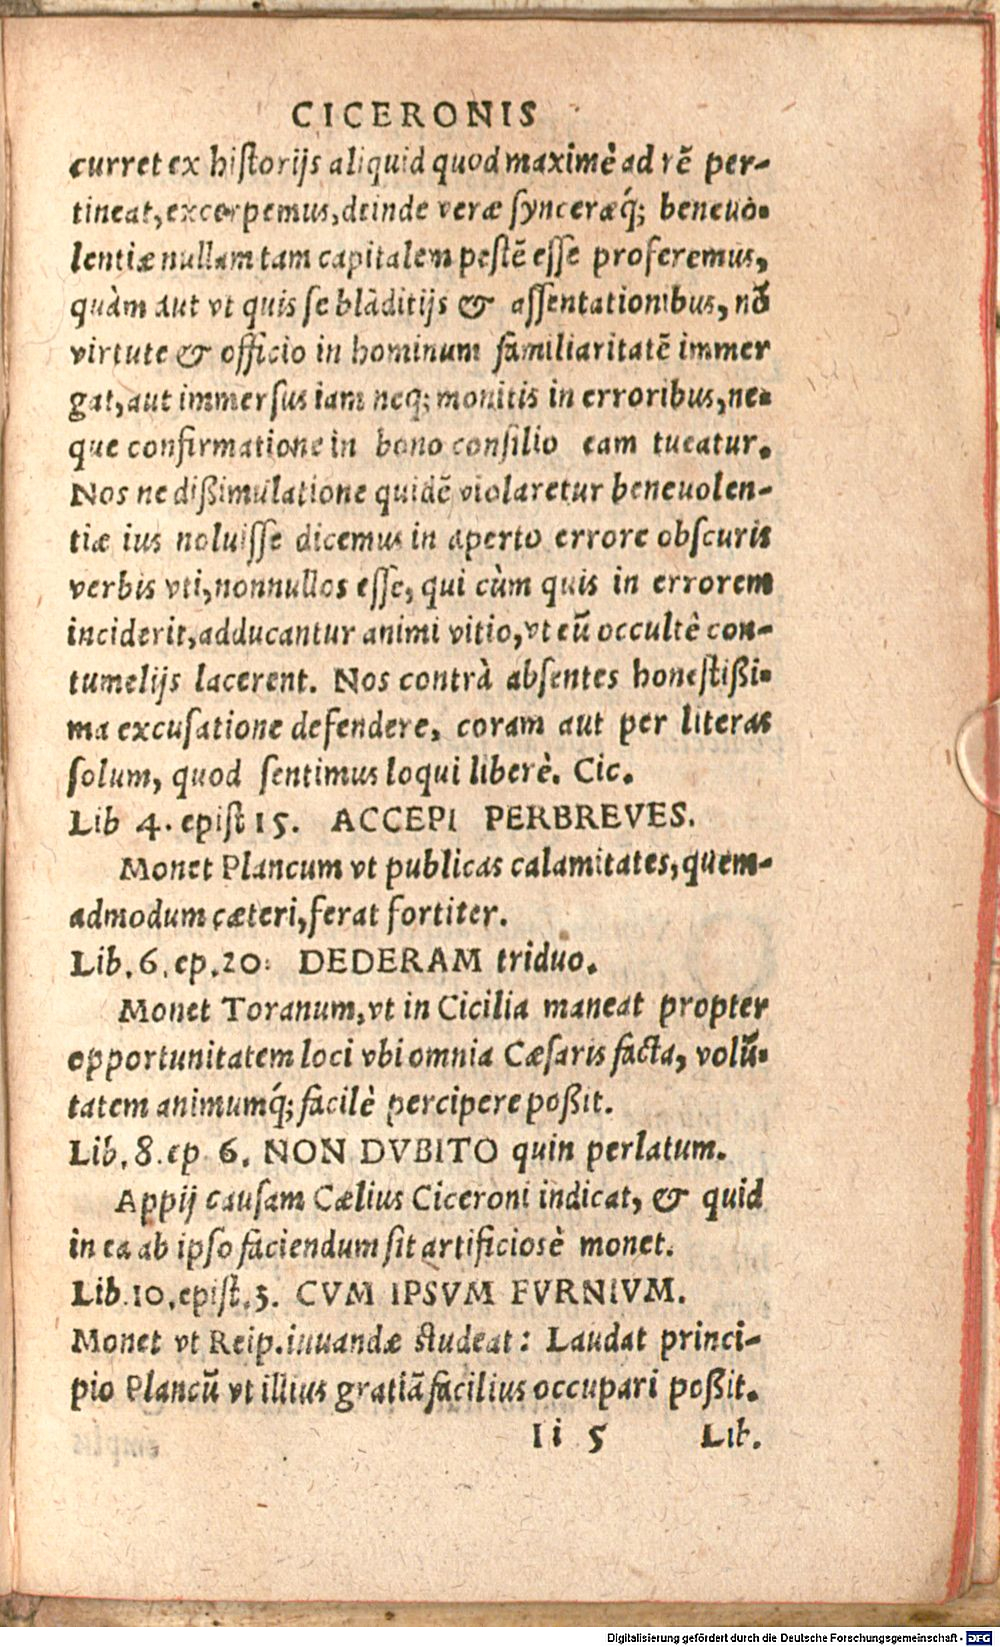 CICERONIS
curret ex historijs aliquid quod maximè ad rē per-
tineat, excerpemus, deinde veræ synceræq́; beneuo-
lentiæ nullam tam capitalem pestē esse proferemus,
quàm aut vt quis se blāditijs & assentationibus, nō
virtute & officio in hominum familiaritatē immer
gat, aut immersus iam neq; monitis in erroribus, ne-
que confirmatione in bono consilio eam tueatur.
Nos ne dißimulatione quidē violaretur beneuolen-
tiæ ius noluisse dicemus in aperto errore obscuris
verbis vti, nonnullos esse, qui cùm quis in errorem
inciderit, adducantur animi vitio, vt eū occultè con-
tumelijs lacerent. Nos contrà absentes honestißi-
ma excusatione defendere, coram aut per literas
solum, quod sentimus loqui liberè. Cic.
Lib 4. epist 15. ACCEPI PERBREVES.
Monet Plancum vt publicas calamitates, quem-
admodum cæteri, ferat fortiter.
Lib. 6. ep. 20: DEDERAM triduo.
Monet Toranum, vt in Cicilia maneat propter
opportunitatem loci vbi omnia Cæsaris facta, volū-
tatem animumq́; facilè percipere poßit.
Lib. 8. ep 6. NON DVBITO quin perlatum.
Appij causam Cælius Ciceroni indicat, & quid
in ea ab ipso faciendum sit artificiosè monet.
Lib. 10. epist. 3. CVM IPSVM FVRNIVM.
Monet vt Reip. iuuandæ studeat: Laudat princi-
pio Plancū vt illius gratiā facilius occupari poßit.
Ii 5 Lib.
Digitalisierung gefördert durch die Deutsche Forschungsgemeinschaft - DFG